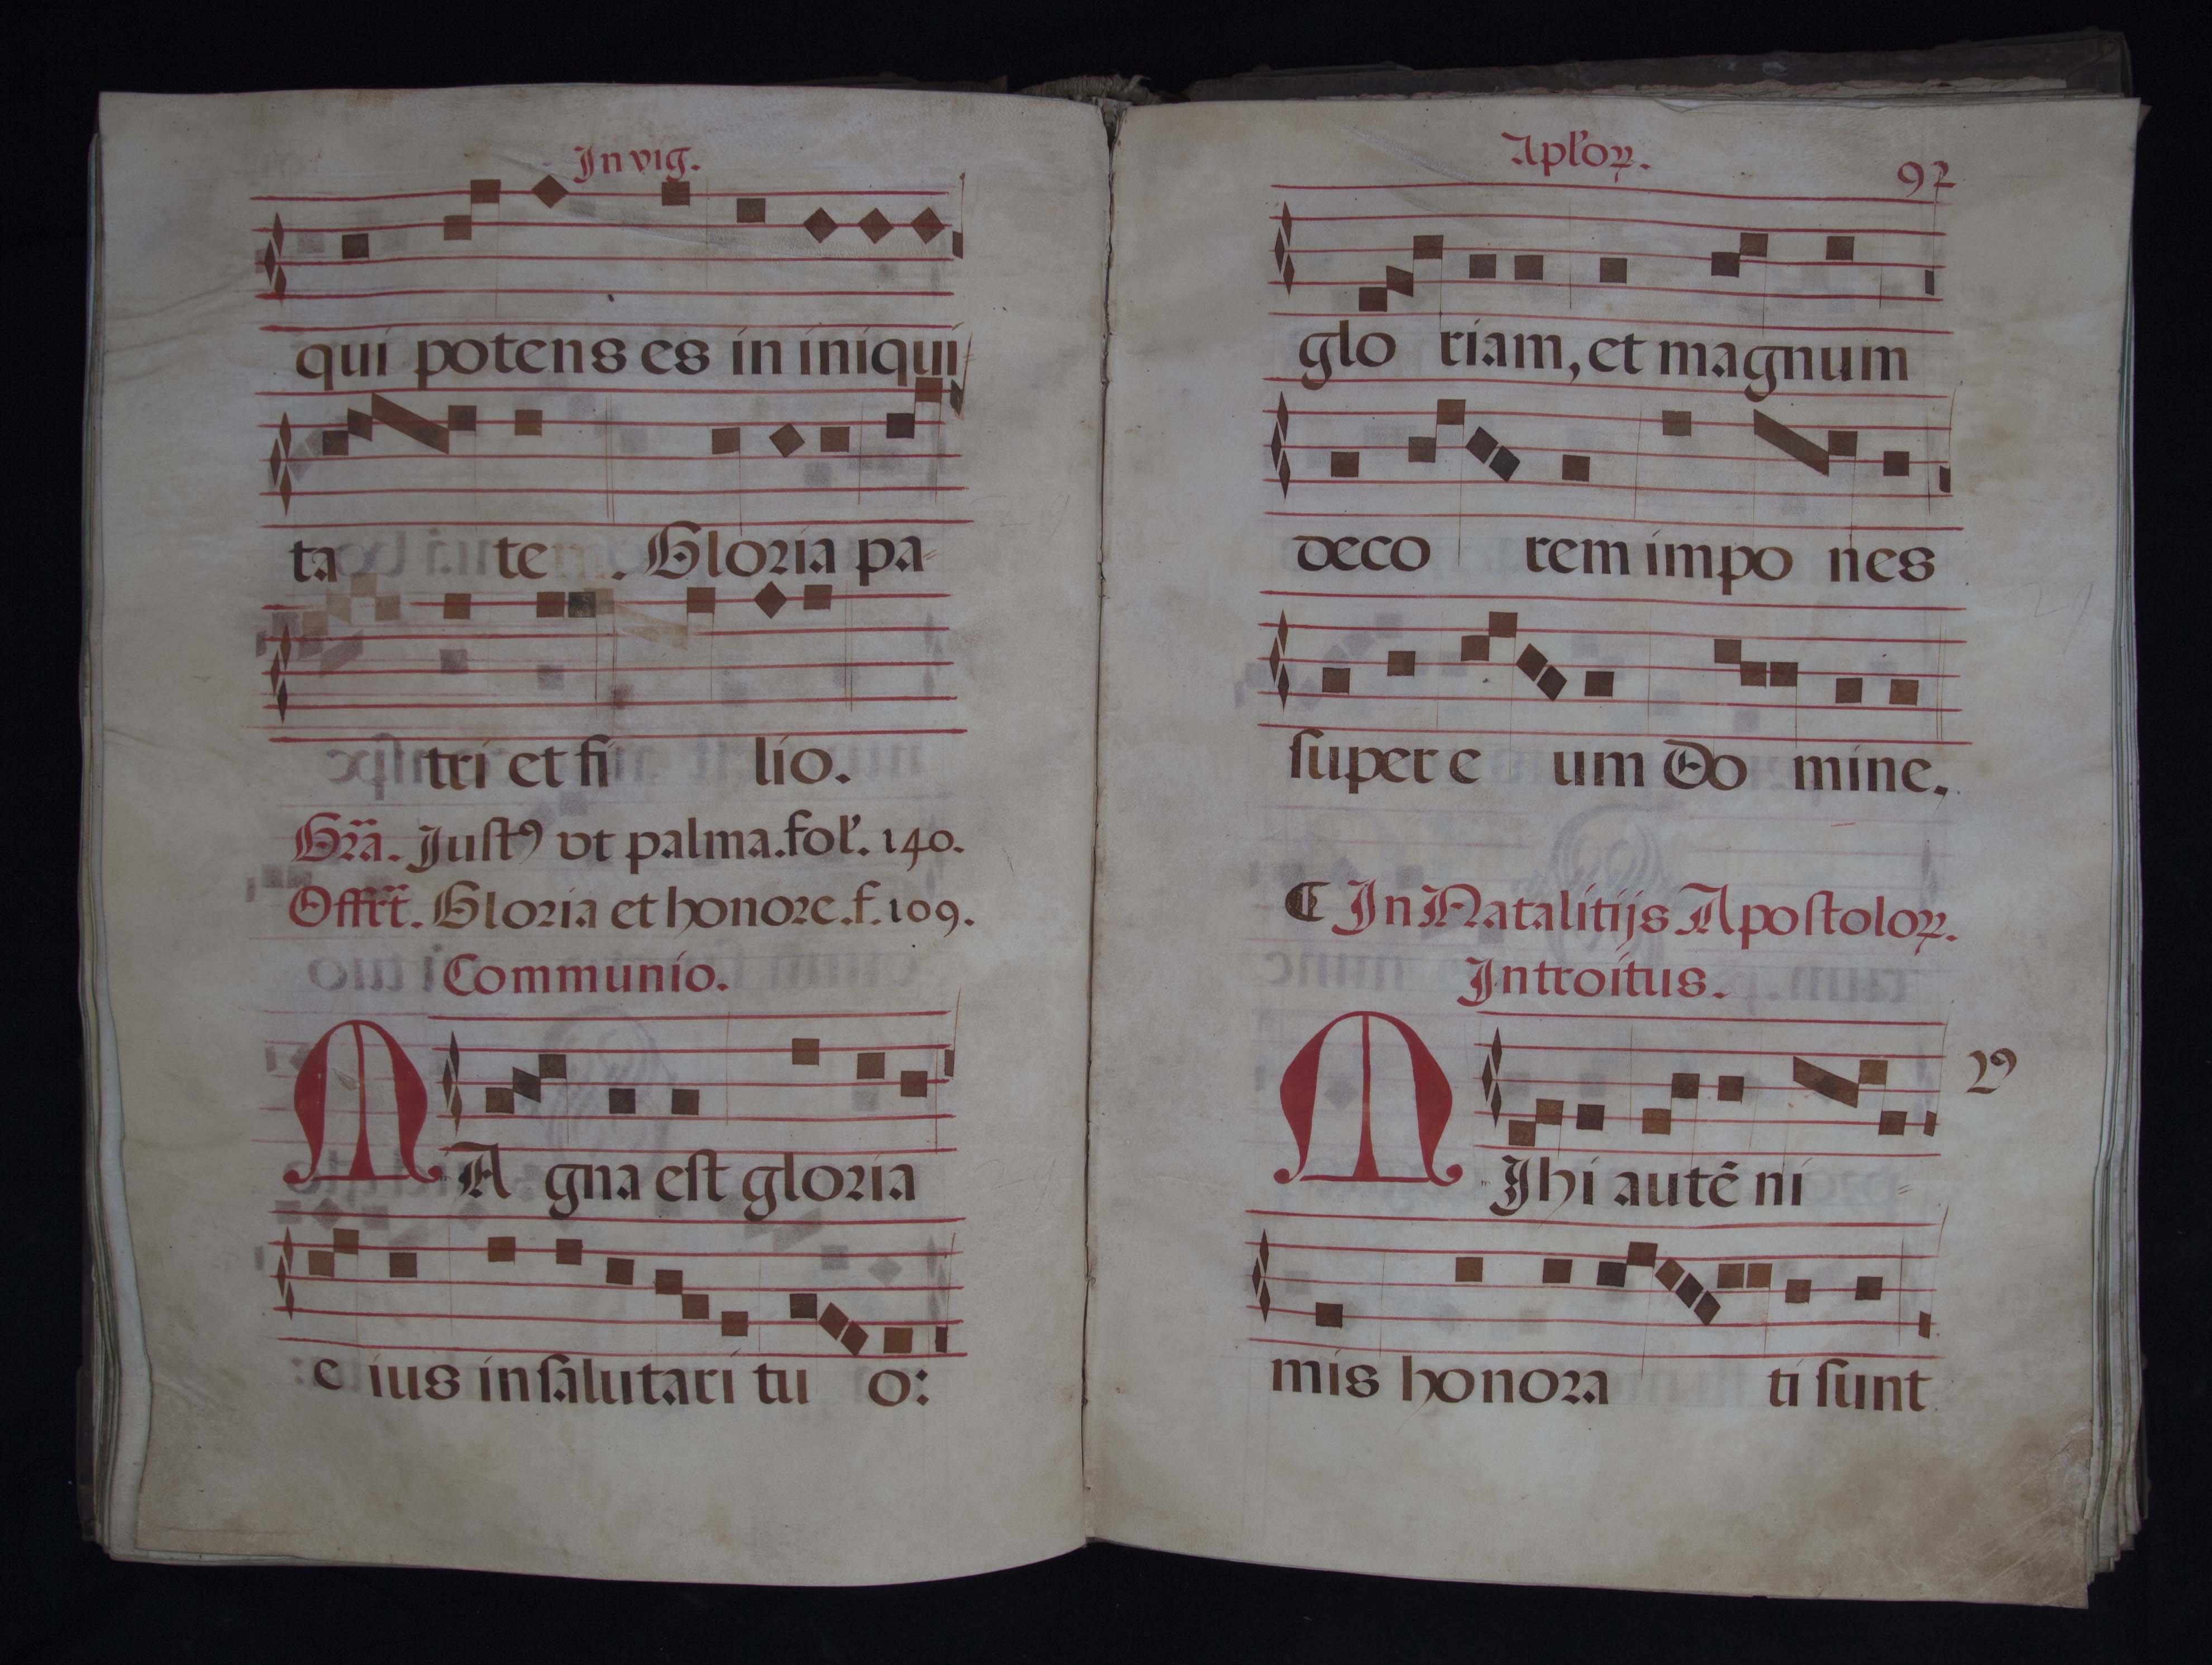 In vig.
qui potens es in iniqui
ta te. Gloria pa-
tri et fi lio.
Gr̃a. Justꝰ vt palma. fol'. 140.
Offrt̃. Gloria et honore. f. 109.
Communio.
MA gna eſt gloria
e ius in ſalutari tu o:
Apl'oꝝ.
92
glo riam, et magnum
deco rem impo nes
ſuper e um Do mine.
C In Natalitijs Apoſtoloꝝ.
Introitus.
MJhi autẽ ni-
mis honora ti ſunt